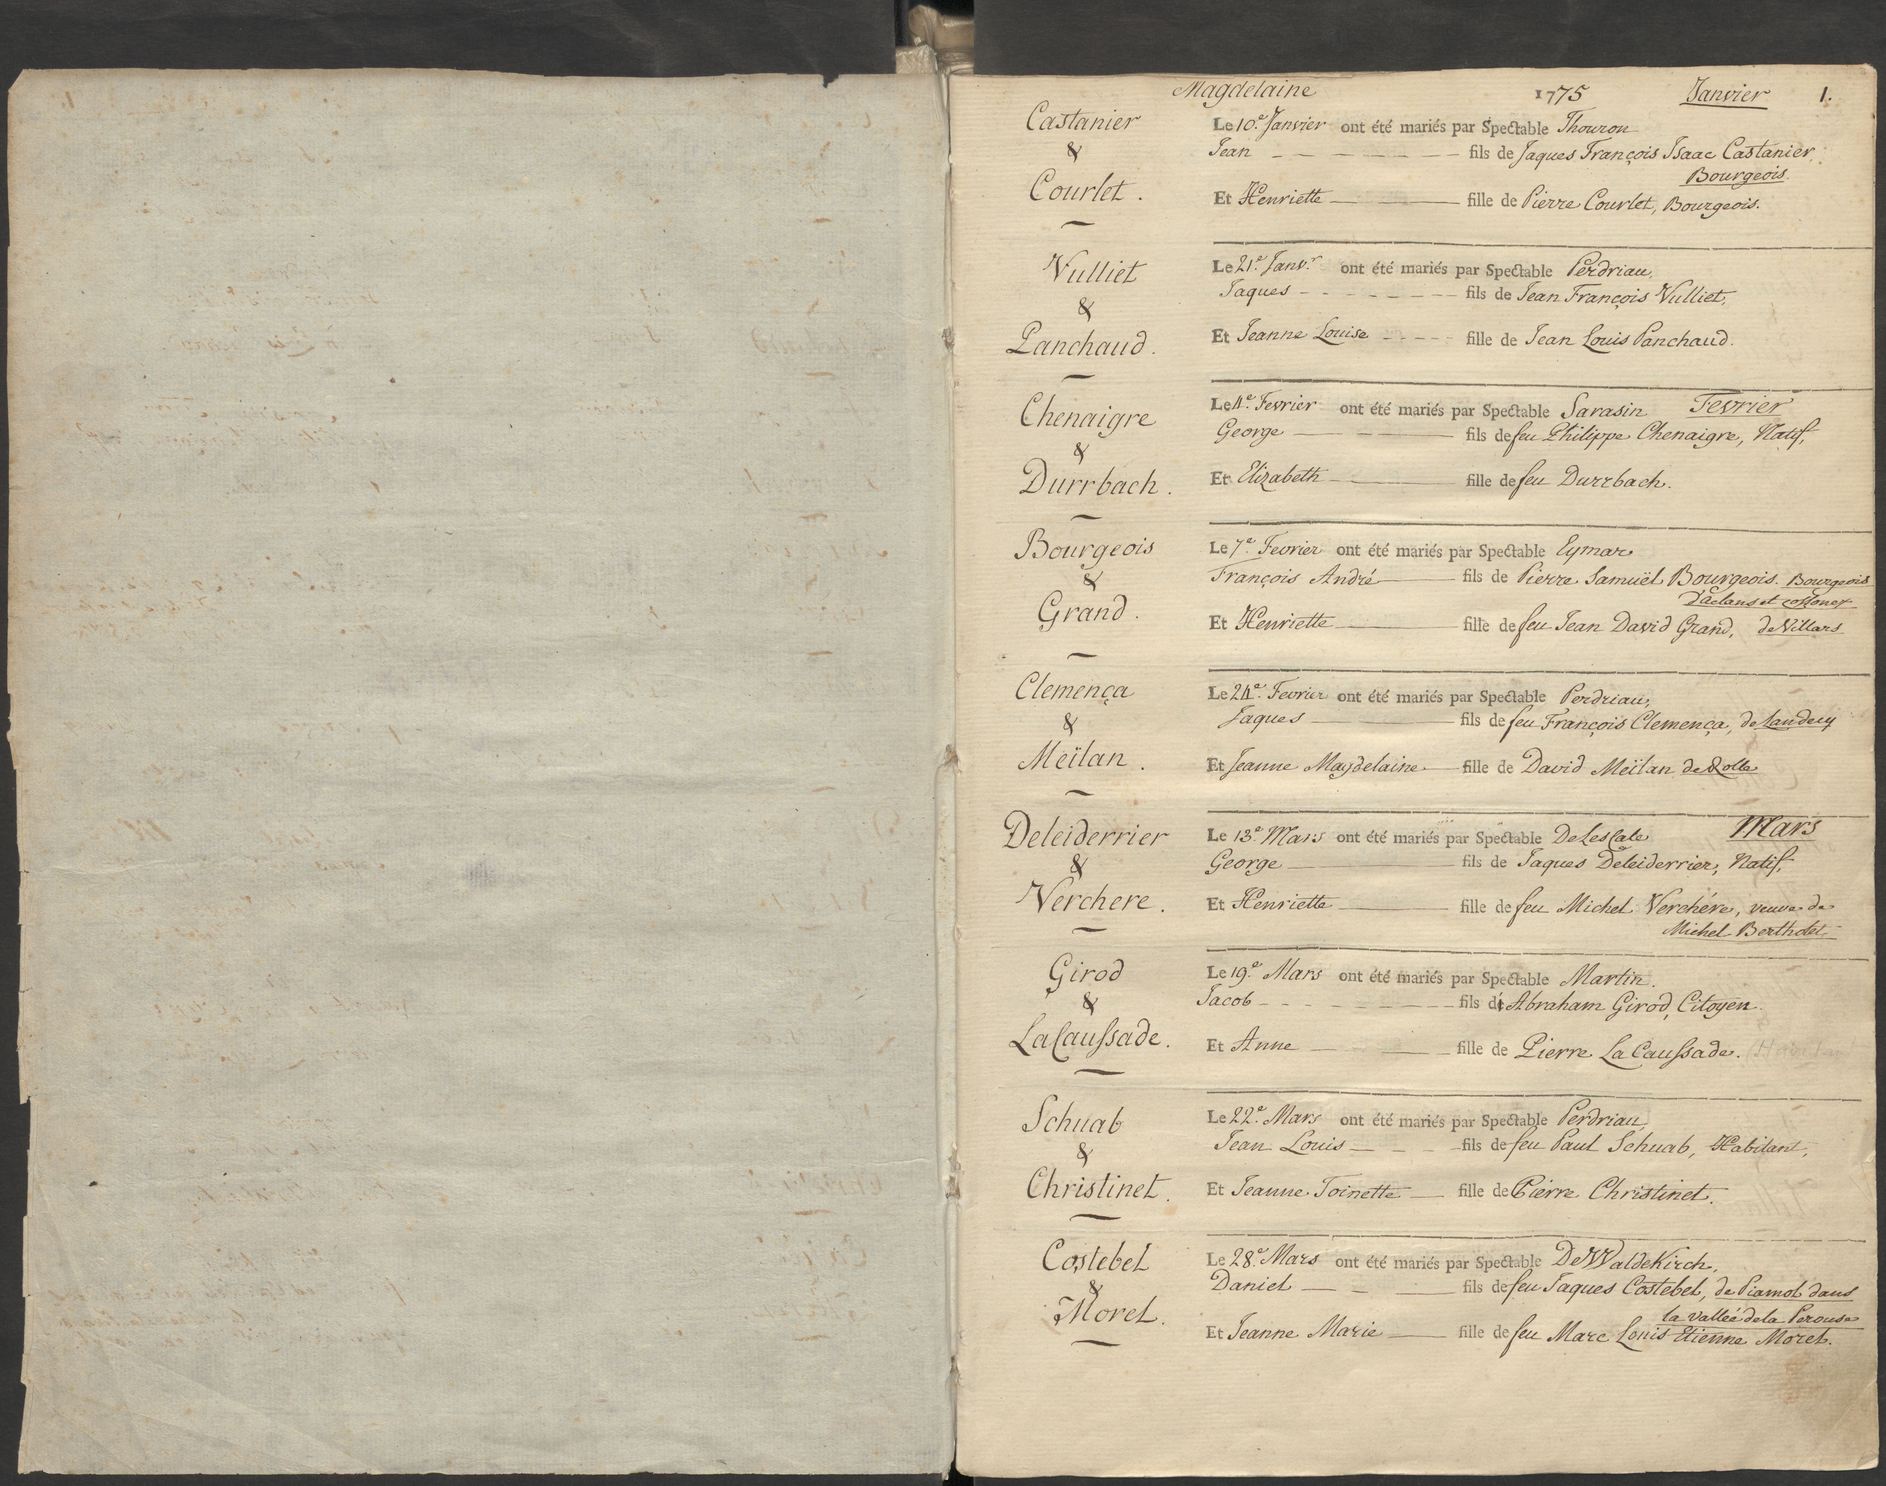 Magdelaine 1775 Janvier 1.
Castanier
&
Courlet.
Le 10e. Janvier ont été mariés par Spectable Thouron
Jean fils de Jaques François Isaac Castanier,
Bourgeois.
Et Henriette fille de Pierre Courlet, Bourgeois.
Vulliet
&
Panchaud.
Le 21e. Janv.r ont été mariés par Spectable Perdriau,
Jaques fils de Jean François Vulliet,
Et Jeanne Louise fille de Jean Louis Panchaud.
Chenaigre
&
Durrbach.
Le 4e. Fevrier ont été mariés par Spectable Sarasin Fevrier
George fils de feu Philippe Chenaigre, Natif,
Et Elizabeth fille de feu Durrbach.
Bourgeois
&
Grand.
Le 7e. Fevrier ont été mariés par Spectable Eymar
François André fils de Pierre Samuël Bourgeois. Bourgeois
d'Aclans et cossonex
Et Henriette fille de feu Jean David Grand, de Villars
Clemença
&
Meïlan.
Le 24e. Fevrier ont été mariés par Spectable Perdriau,
Jaques fils de feu François Clemença, de Landecy
Et Jeanne Magdelaine fille de David Meïlan de Rolle
Deleiderrier
&
Verchere.
Le 13e. Mars ont été mariés par Spectable DeLescale Mars
George fils de Jaques Deleiderrier, Natif,
Et Henriette fille de feu Michel Verchére, veuve de
Michel Bertholet
Girod
&
LaCaussade.
Le 19e. Mars ont été mariés par Spectable Martin.
Jacob fils de Abraham Girod, Citoyen.
Et Anne fille de Pierre LaCaussade. (Habitant
Schuab
&
Christinet.
Le 22e. Mars ont été mariés par Spectable Perdriau,
Jean Louis fils de feu Paul Schuab, Habitant,
Et Jeanne Toinette fille de Pierre Christinet.
Costebel
&
Morel.
Le 28e. Mars ont été mariés par Spectable De Waldekirch,
Daniel fils de feu Jaques Costebel, de Piamol dans
la valleé de la Perouse
Et Jeanne Marie fille de feu Marc Louis Etienne Morel.